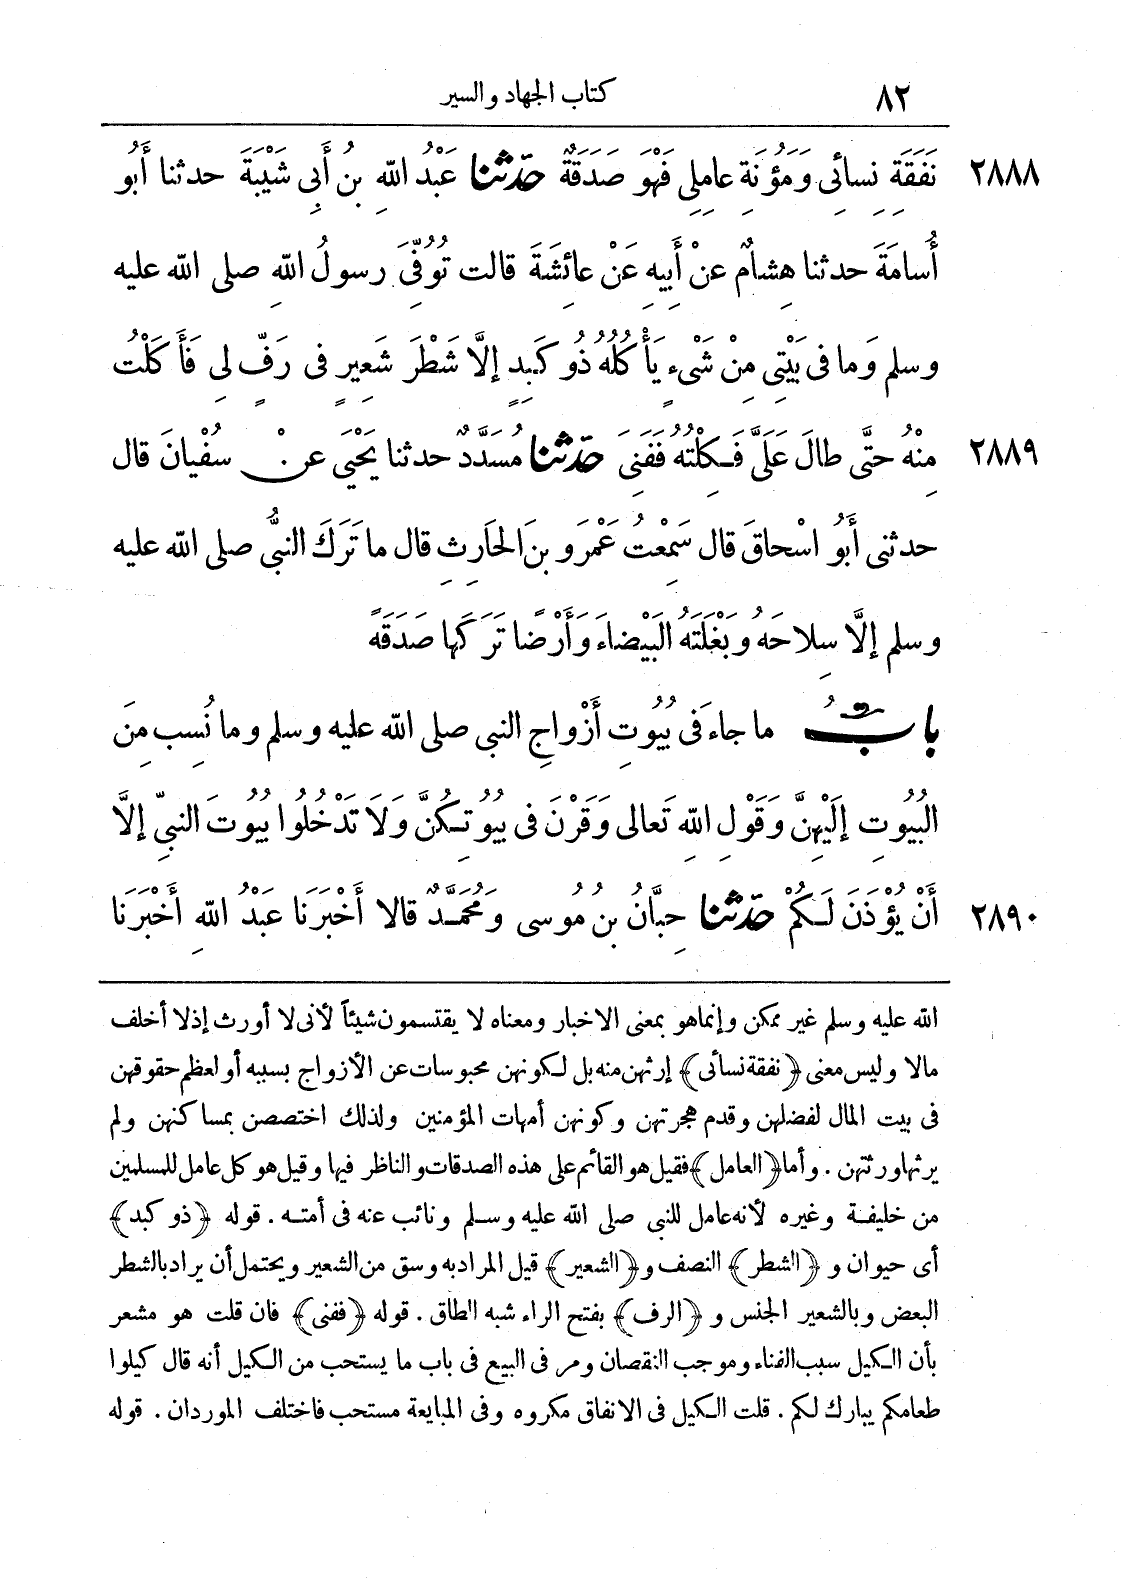 ٨٢ كتاب الجهاد والسير
٢٨٨٨ نَفَقَةِ نِسائِى وَمَؤُنَةِ عامِلِى فَهْوَ صَدَقَةٌ حدّثنا عَبْدُ اللهِ بنُ أَبِى شَيْبَةَ حدثنا أَبُو
أُسامَةَ حدثنا هِشامٌ عنْ أَبِيهِ عَنْ عائِشَةَ قالت تُوُفِّىَ رسولُ اللهِ صلى الله عليه
وسلم وَما فى بَيْتِى مِنْ شَىْءٍ يَأْكُلُهُ ذُو كَبِدٍ إِلَّا شَطْرَ شَعِيرٍ فى رَفٍّ لِى فَأَكَلْتُ
٢٨٨٩ مِنْهُ حتَّى طالَ عَلَىَّ فَكِلْتُهُ فَفَنِىَ حدّثنا مُسَدَّدٌ حدثنا يَحْيَى عن سُفْيانَ قال
حدثنى أَبُو اسْحاقَ قال سَمِعْتُ عَمْرَو بنَ الحَارِثِ قال ما تَرَكَ النبىُّ صلى الله عليه
وسلم إِلَّا سِلاحَهُ وبَغْلَتَهُ البَيْضاءَ وَأَرْضًا تَرَكَها صَدَقَةً
بابُ ما جاءَ فى بُيُوتِ أَزْواجِ النبى صلى الله عليه وسلم وما نُسِبَ مِنَ
البُيُوتِ إِلَيْهِنَّ وَقَوْلِ اللهِ تَعالى وَقَرْنَ فى بيُوتِكُنَّ وَلَا تَدْخُلُوا بيُوتَ النبىِّ إِلَّا
٢٨٩٠ أَنْ يُؤْذَنَ لَكُمْ حدّثنا حِبَّانُ بنُ مُوسى ومُحَمَّدٌ قالا أَخْبَرَنا عَبْدُ اللهِ أَخْبَرَنا
الله عليه وسلم غير ممكن وإنما هو بمعنى الاخبار ومعناه لا يقتسمون شيئاً لأنى لا أورث إذ لا أخلف
مالا وليس معنى ﴿نفقة نسائى﴾ إرثهن منه بل لكونهن محبوسات عن الأزواج بسببه أو لعظم حقوقهن
فى بيت المال لفضلهن وقدم هجرتهن وكونهن أمهات المؤمنين ولذلك اختصصن بمساكنهن ولم
يرثها ورثتهن . وأما ﴿العامل﴾ فقيل هو القائم على هذه الصدقات والناظر فيها وقيل هو كل عامل للمسلمين
من خليفة وغيره لأنه عامل للنبى صلى الله عليه وسلم ونائب عنه فى أمته . قوله ﴿ذو كبد﴾
أى حيوان و ﴿الشطر﴾ النصف و ﴿الشعير﴾ قيل المراد به وسق من الشعير ويحتمل أن يراد بالشطر
البعض وبالشعير الجنس و ﴿الرف﴾ بفتح الراء شبه الطاق . قوله ﴿ففنى﴾ فان قلت هو مشعر
بأن الكيل سبب الفناء وموجب النقصان ومر فى البيع فى باب ما يستحب من الكيل أنه قال كيلوا
طعامكم يبارك لكم . قلت الكيل فى الانفاق مكروه وفى المبايعة مستحب فاختلف الموردان . قوله